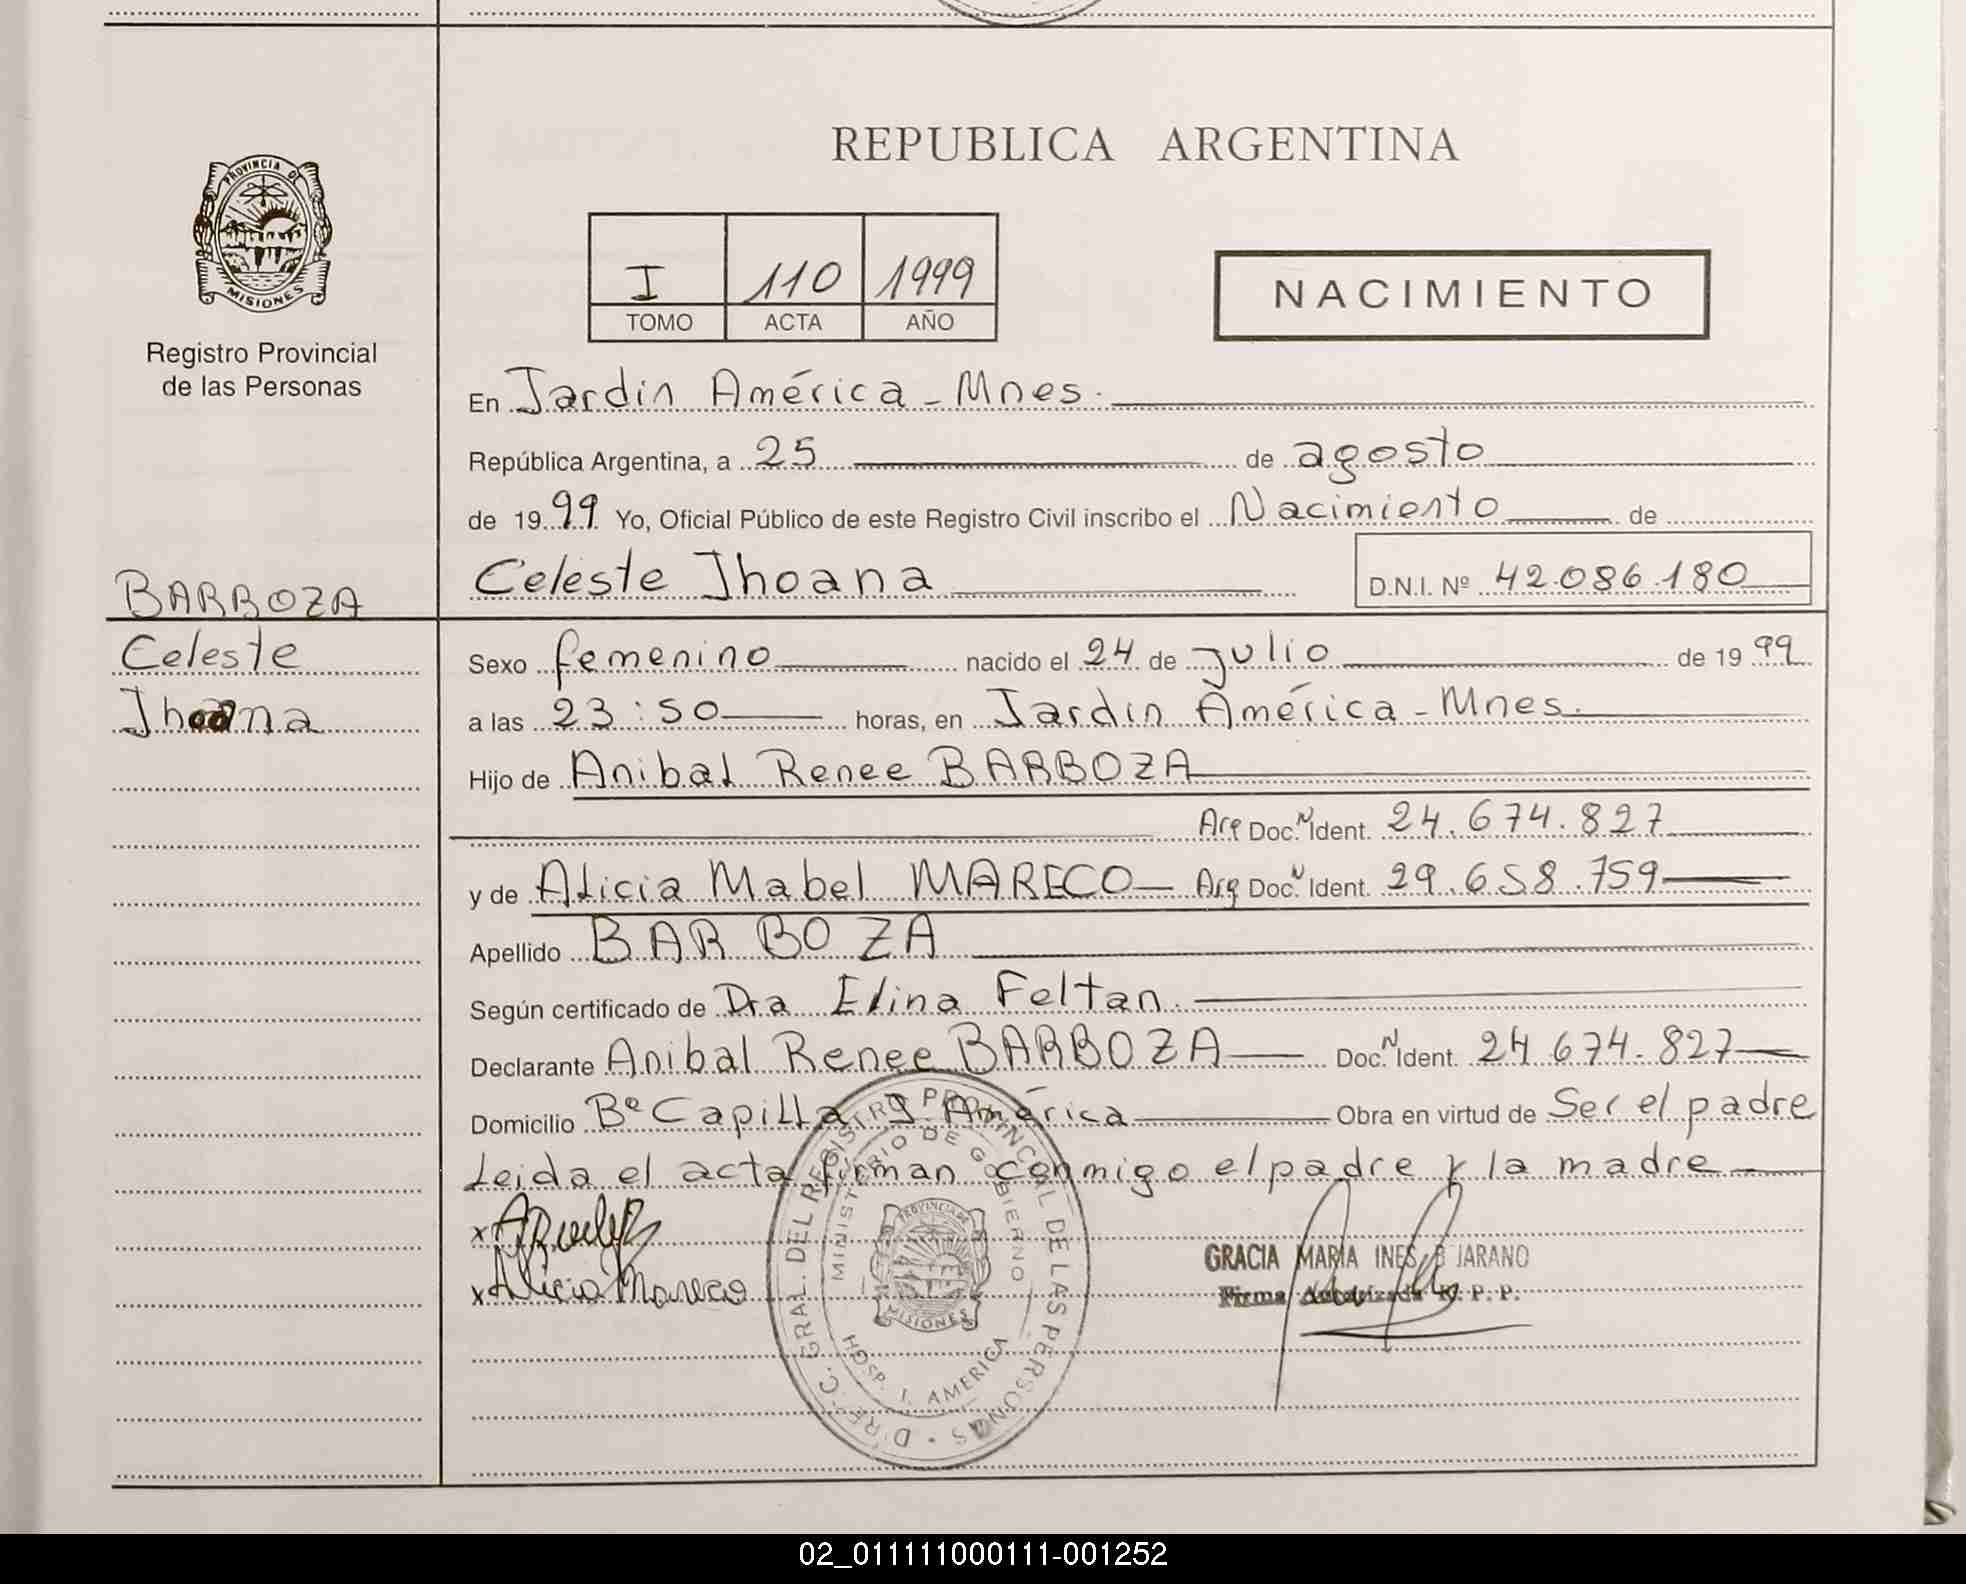 REPUBLICA ARGENTINA
PROVINCIA DE
MISIONES
Registro Provincial
de las Personas
I 110 1999
TOMO ACTA AÑO
NACIMIENTO
En Jardin América - Mnes.
República Argentina, a 25 de agosto
de 1999 Yo, Oficial Público de este Registro Civil inscribo el Nacimiento de
Celeste Jhoana D.N.I. Nº 42.086.180
BARBOZA
Celeste
Jhoana
Sexo femenino nacido el 24 de julio de 1999
a las 23:50 horas, en Jardin América - Mnes.
Hijo de Anibal Renee BARBOZA
Arg Doc. N Ident. 24.674.827
y de Alicia Mabel MARECO Arg Doc. N Ident. 29.658.759
Apellido BARBOZA
Según certificado de Dra Elina Feltan.
Declarante Anibal Renee BARBOZA Doc. N Ident. 24 674.827
Domicilio Bº Capilla J América Obra en virtud de Ser el padre
Leida el acta firman conmigo el padre y la madre
x
x Alicia Mareco
DIREC. GRAL. DEL REGISTRO PROVINCIAL DE LAS PERSONAS
MINISTERIO DE GOBIERNO
PROVINCIA DE
MISIONES
HOSP. J. AMERICA
GRACIA MARIA INES B JARANO
Firma Autorizada R. P. P.
02_011111000111-001252